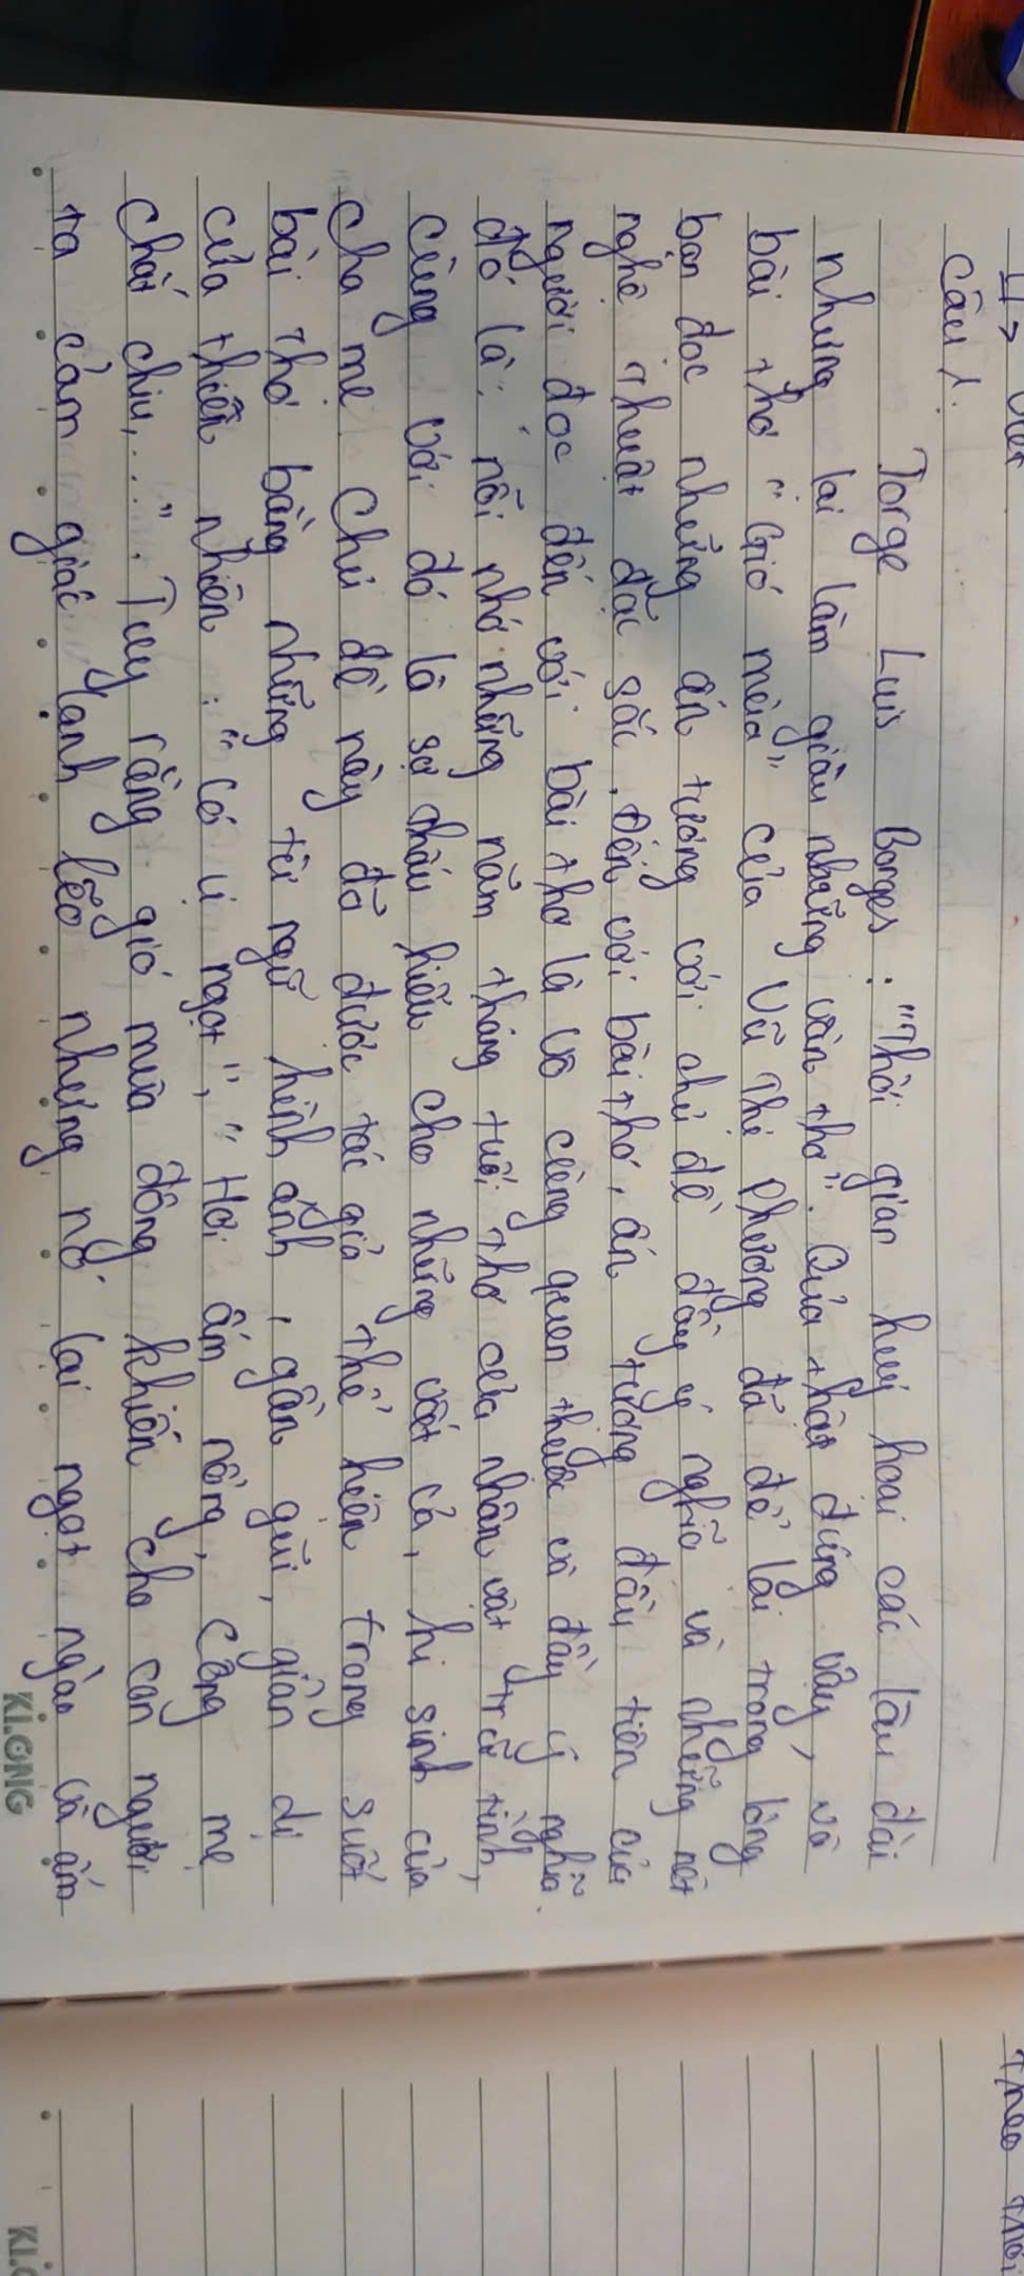 II> Viết
Câu 1.
Jorge Luis Borges : "Thời gian huỷ hoại các lâu đài
nhưng lại làm giàu những vần thơ". Quả thật đúng vậy, và
bài thơ "Gió mùa" của Vũ Thị Phương đã để lại trong lòng
bạn đọc những ấn tượng với chủ đề đầy ý nghĩa và những nét
nghệ thuật đặc sắc. Đến với bài thơ, ấn tượng đầu tiên của
người đọc đến với bài thơ là vô cùng quen thuộc và đầy ý nghĩa.
đó là: nỗi nhớ những năm tháng tuổi thơ của nhân vật trữ tình,
cùng với đó là sự thấu hiểu cho những vất vả, hi sinh của
cha mẹ. Chủ đề này đã được tác giả thể hiện trong suốt
bài thơ bằng những từ ngữ hình ảnh, gần gũi, giản dị
của thiên nhiên : "có vị ngọt", " Hơi ấm nồng, Cõng mẹ
chắt chiu,....". Tuy rằng gió mùa đông khiến cho con người
ta cảm giác lạnh lẽo nhưng nó lại ngọt ngào và ấm
Ki.ONG
Theo